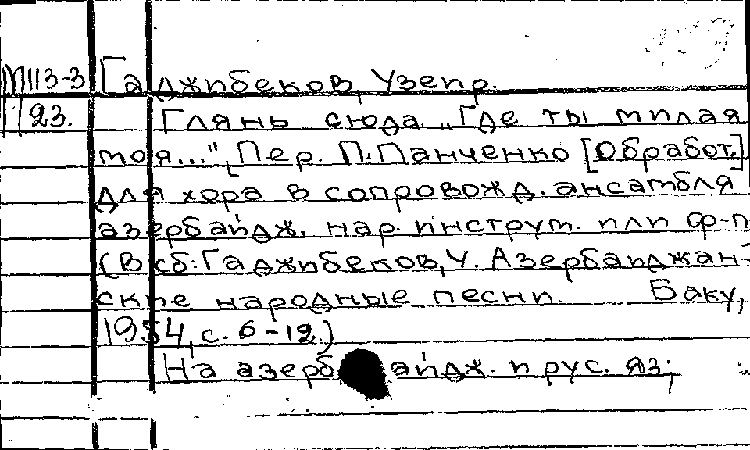 М113-3 Гаджибеков, Узеир.
Г23. Глянь сюда. „Где ты милая
моя..." Пер. П. Панченко [Обработ.]
для хора в сопровожд. ансамбля
азербайдж. нар. инструм. или ф-п
(В сб: Гаджибеков, У. Азербайджан-
ские народные песни. Баку,
1954, с. 6-12.)
На азербайдж. и рус. яз;